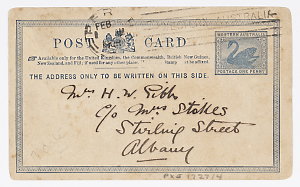 AUSTRALIA
FEB
POST CARD
WESTERN AUSTRALIA
Available only for the United Kingdom, the Commonwealth, British New Guinea,
New Zealand, and Fiji.
If used for any other place,
stamp must be affixed.
POSTAGE ONE PENNY
THE ADDRESS ONLY TO BE WRITTEN ON THIS SIDE.
Mr. H. W. Gibb
c/o Mrs Stokes
Stirling Street
Albany
PXS 1727/4